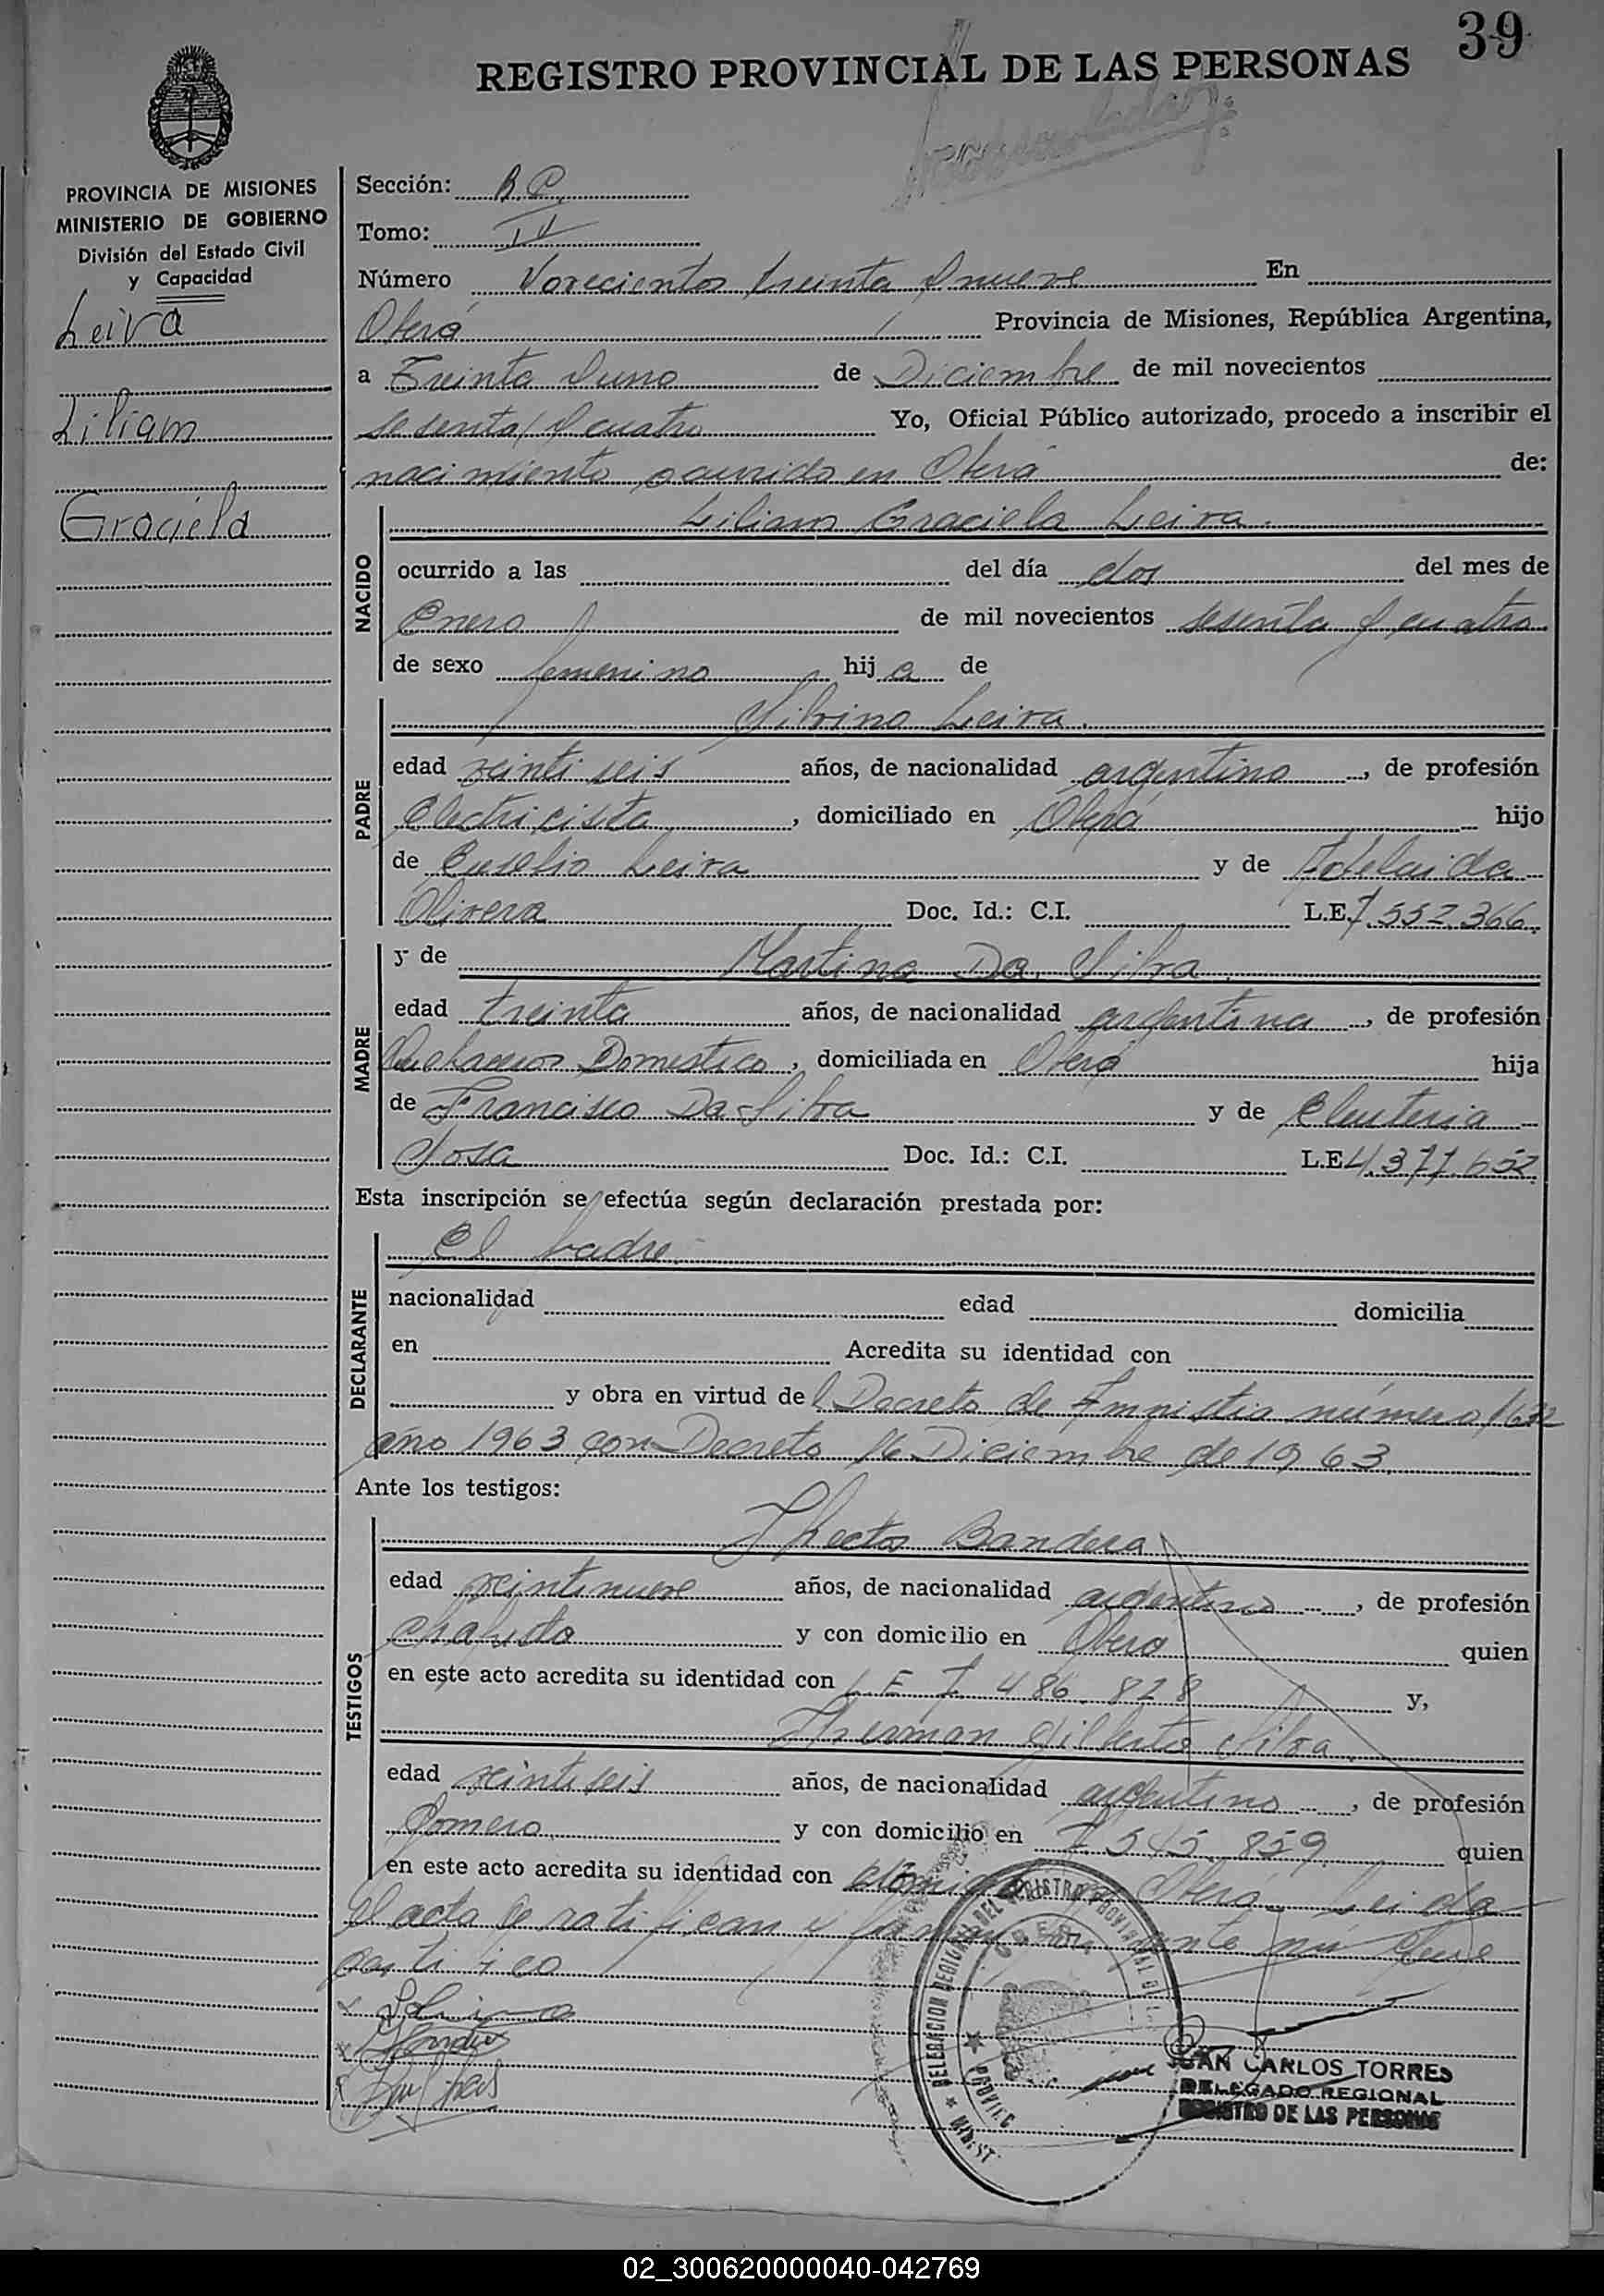 39
REGISTRO PROVINCIAL DE LAS PERSONAS
PROVINCIA DE MISIONES
MINISTERIO DE GOBIERNO
División del Estado Civil
y Capacidad
Leiva
Liliam
Graciela
Sección: B.P.
Tomo: IV
Número Novecientos treinta y nueve En
Oberá Provincia de Misiones, República Argentina,
a Treinta y uno de Diciembre de mil novecientos
sesenta y cuatro Yo, Oficial Público autorizado, procedo a inscribir el
nacimiento ocurrido en Oberá de:
NACIDO
Liliam Graciela Leiva.
ocurrido a las del día dos del mes de
Enero de mil novecientos sesenta y cuatro
de sexo femenino hija de
PADRE
Silvino Leiva.
edad veinti seis años, de nacionalidad argentino, de profesión
Electricista, domiciliado en Oberá hijo
de Eusebio Leiva y de Adelaida
Olivera Doc. Id.: C.I. L.E. 7.552.366.
MADRE
y de Martina Da Silva
edad treinta años, de nacionalidad argentina, de profesión
Quehaceres Domestico, domiciliada en Oberá hija
de Francisco Da Silva y de Eleuteria
Sosa Doc. Id.: C.I. L.E. 4.371.652
Esta inscripción se efectúa según declaración prestada por:
DECLARANTE
El padre
nacionalidad edad domicilia
en Acredita su identidad con
y obra en virtud del Decreto de Amnistia número 1632
año 1963 con Decreto 16 Diciembre de 1963
Ante los testigos:
TESTIGOS
Hector Bandera
edad veintinueve años, de nacionalidad argentino, de profesión
Chapista y con domicilio en Oberá quien
en este acto acredita su identidad con L E 7.486.828 y,
Herman Gilberto Silva
edad veintiseis años, de nacionalidad argentino, de profesión
Gomero y con domicilio en 7.545.859 quien
en este acto acredita su identidad con Oberá Leida
el acta se ratifican y firman ante mí que
certifico
DELEGACION REGIONAL DEL REGISTRO PROVINCIAL DE
OBERA
JUAN CARLOS TORRES
DELEGADO REGIONAL
REGISTRO DE LAS PERSONAS
02_300620000040-042769